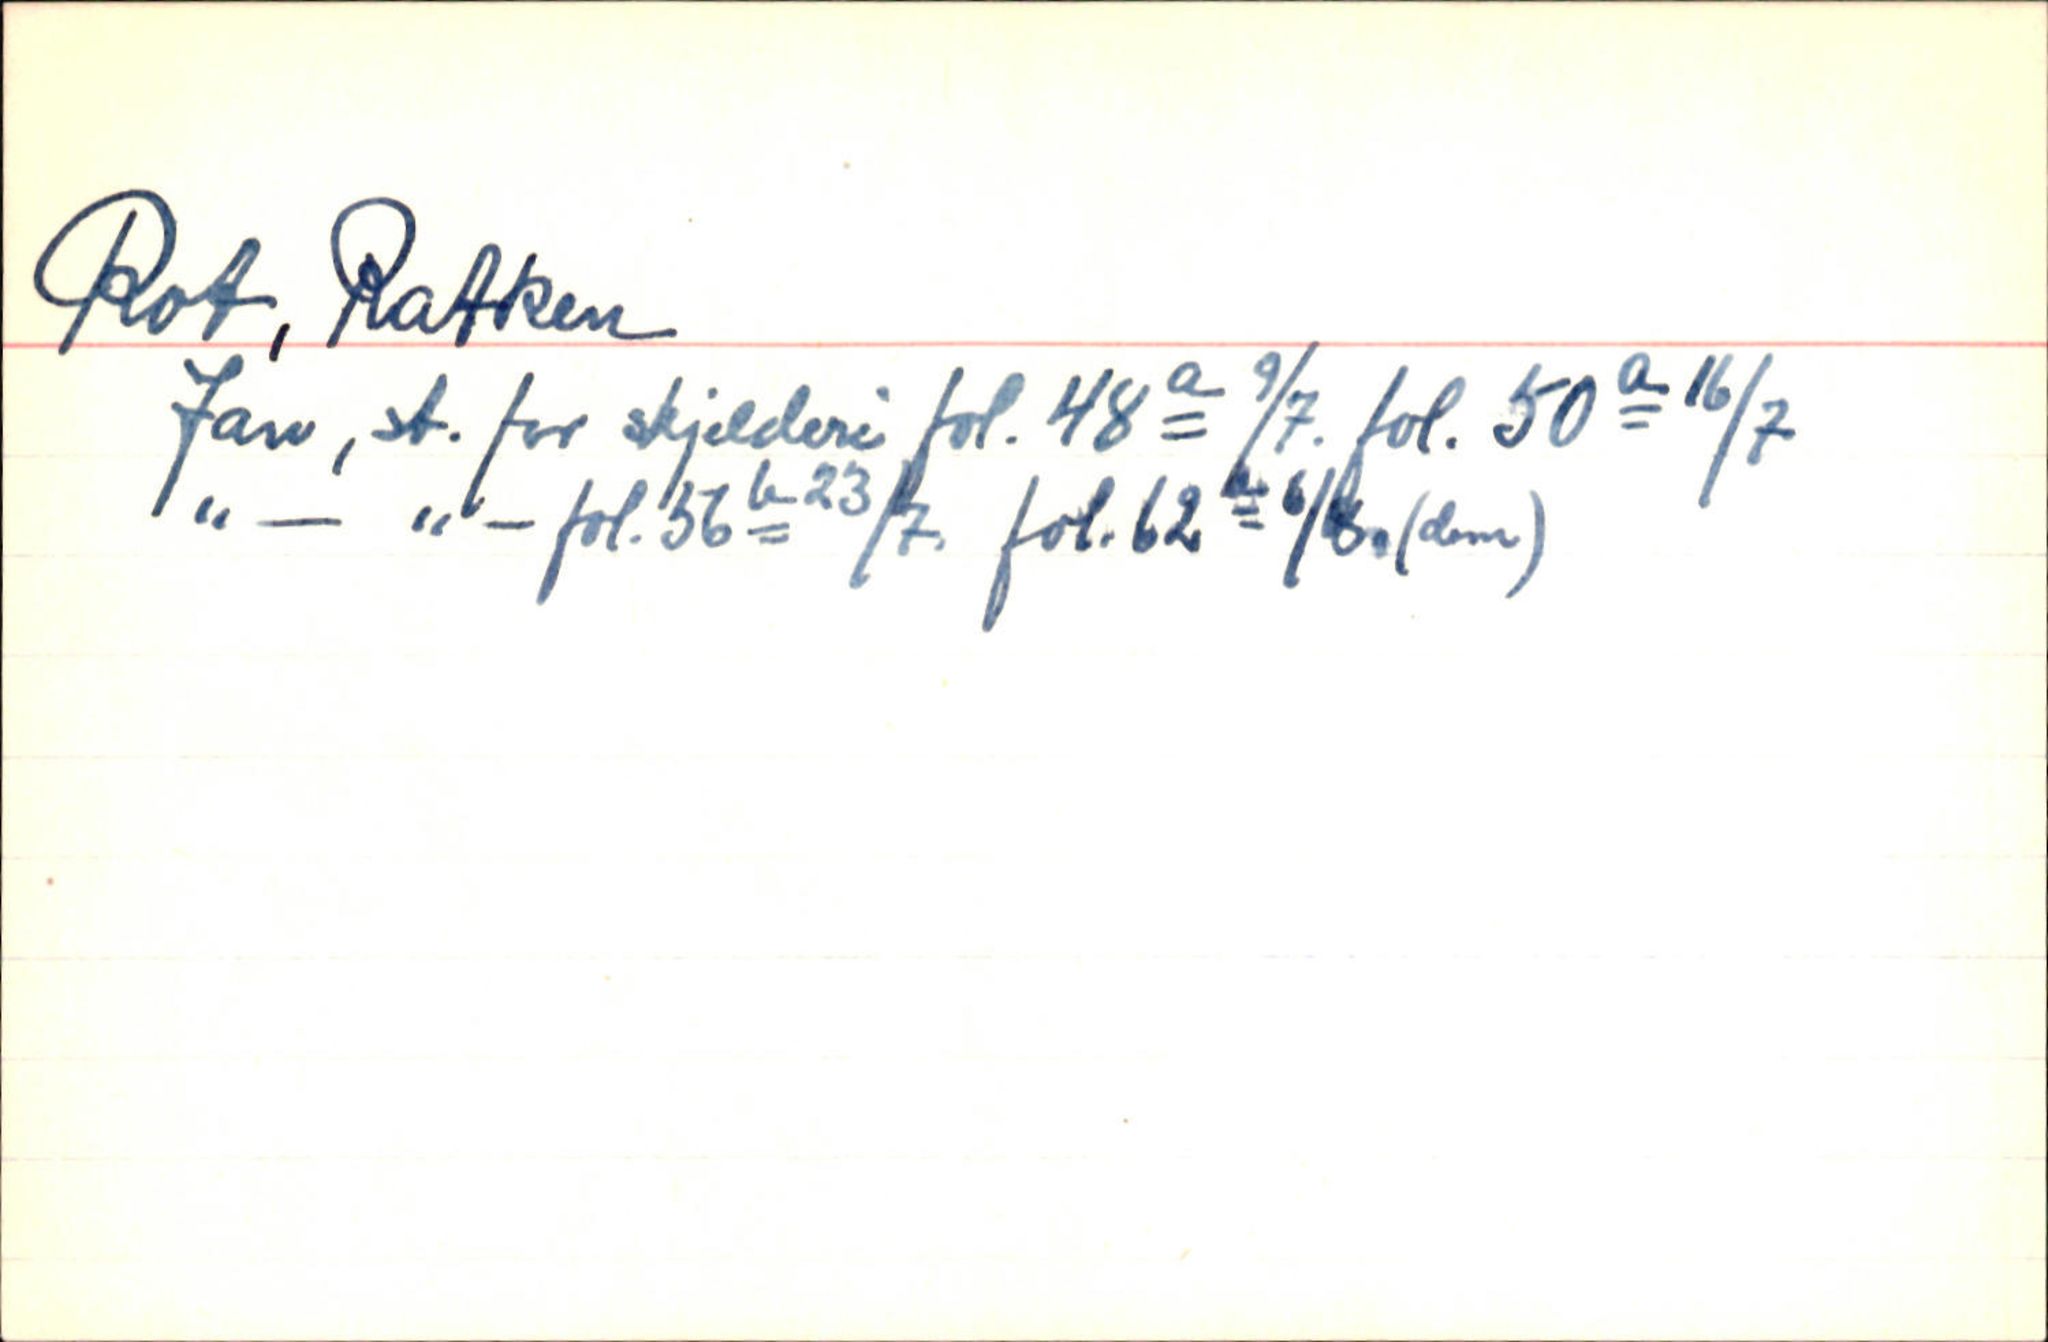 Rot, Ratken
Jan, st. for skjelderi fol. 48a 9/7. fol. 50a 16/7
" — " — fol. 56b 23/7. fol. 62 6/8. (dom)